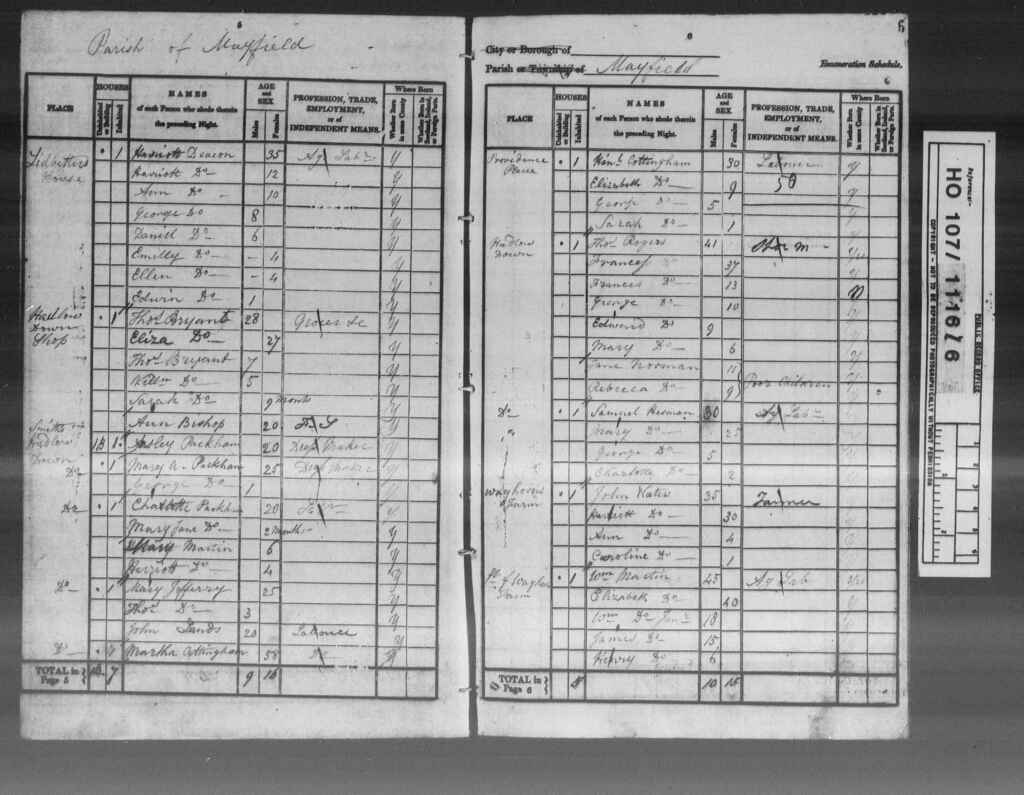 5
Parish of Mayfield
PLACE HOUSES NAMES of each Person who abode therein the preceding Night. AGE and SEX PROFESSION, TRADE, EMPLOYMENT, or of INDEPENDENT MEANS. Where Born
Uninhabited or Building Inhabited Males Females Whether Born in same County Whether Born in Scotland, Ireland, or Foreign Parts.
1 Harriott Deacon 35 Ag Lab y
House Harriott Do 12 y
Ann Do 10 y
George Do 8 y
Daniel Do 6 y
Emilly Do 4 y
Ellen Do 4 y
Edwin Do 1 y
Hadlow 1 Thos Bryant 28 Grocer &c y
Down Eliza Do 27 y
Shop Thos Bryant 7 y
Willm Do 5 y
Sarah Do 9 months y
Ann Bishop 20 F S y
Down 1 Packham 20 Maker y
Do 1 Mary A Packham 25 Maker y
George Do 1
Do 1 Charlotte Packham 20
Mary Jane Do 2 months y
Mary Martin 6 y
Harriott Do 4 y
Do 1 Mary Jefferry 25 y
Thos Do 3 y
John Sands 20 Labourer y
Do 1 Martha Cottingham 58 y
TOTAL in Page 5 7 9 16
6
6
City or Borough of
Parish or Township of Mayfield Enumeration Schedule.
6
PLACE HOUSES NAMES of each Person who abode therein the preceding Night. AGE and SEX PROFESSION, TRADE, EMPLOYMENT, or of INDEPENDENT MEANS. Where Born
Uninhabited or Building Inhabited Males Females Whether Born in same County Whether Born in Scotland, Ireland, or Foreign Parts.
Providence 1 Cottingham 30 Labourer y
Place Elizabeth Do 9 50 y
George Do 5 y
Sarah Do 1 y
Hadlow 1 Thos Rogers 41
Down Frances Do 37 y
Frances Do 13
George Do 10 y
Edward Do 9 y
Mary Do 6 y
Jane Norman 11 y
Rebecca Do 9 Poor Children y
Do 1 Samuel 30 Ag Lab
Mary Do 25
George Do 5 y
Charlotte Do 2
Farm 1 John 35 Farmer
Harriott Do 30 y
Ann Do 4 y
Caroline Do 1
Farm 1 Wm Martin 45 Ag Lab
Elizabeth Do 40 y
Wm Do Junr 18 y
James Do 15 y
Henry Do 6 y
TOTAL in Page 6 10 15
Reference:-
HO 107/1116/6
COPYRIGHT - NOT TO BE REPRODUCED PHOTOGRAPHICALLY WITHOUT PERMISSION
PUBLIC RECORD OFFICE